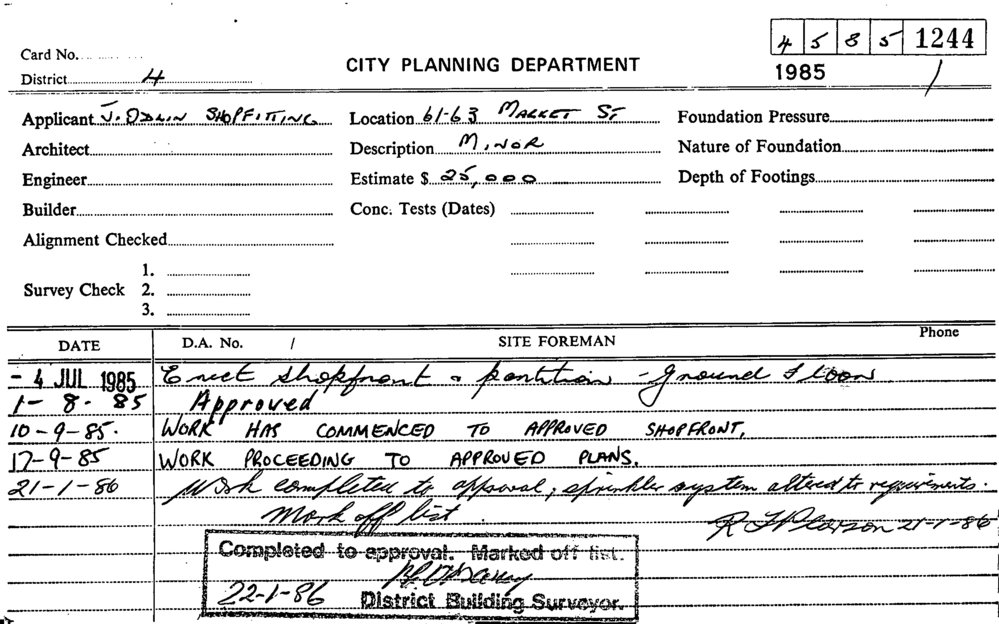 4 5 8 5 1244
Card No.
CITY PLANNING DEPARTMENT
1985 /
District 4
Applicant J. ODLIN SHOPFITTING Location 61-63 MARKET ST Foundation Pressure
Architect Description MINOR Nature of Foundation
Engineer Estimate $ 25,000 Depth of Footings
Builder Conc. Tests (Dates)
Alignment Checked
1.
Survey Check 2.
3.
DATE D.A. No. / SITE FOREMAN Phone
- 4 JUL 1985 Erect shopfront & partition - ground floor
1- 8- 85 Approved
10-9-85. WORK HAS COMMENCED TO APPROVED SHOPFRONT.
17-9-85 WORK PROCEEDING TO APPROVED PLANS.
21-1-86 Work completed to approval; sprinkler system altered to requirements.
Mark off list. Pearson 21-1-86
Completed to approval. Marked off list.
22-1-86 District Building Surveyor.